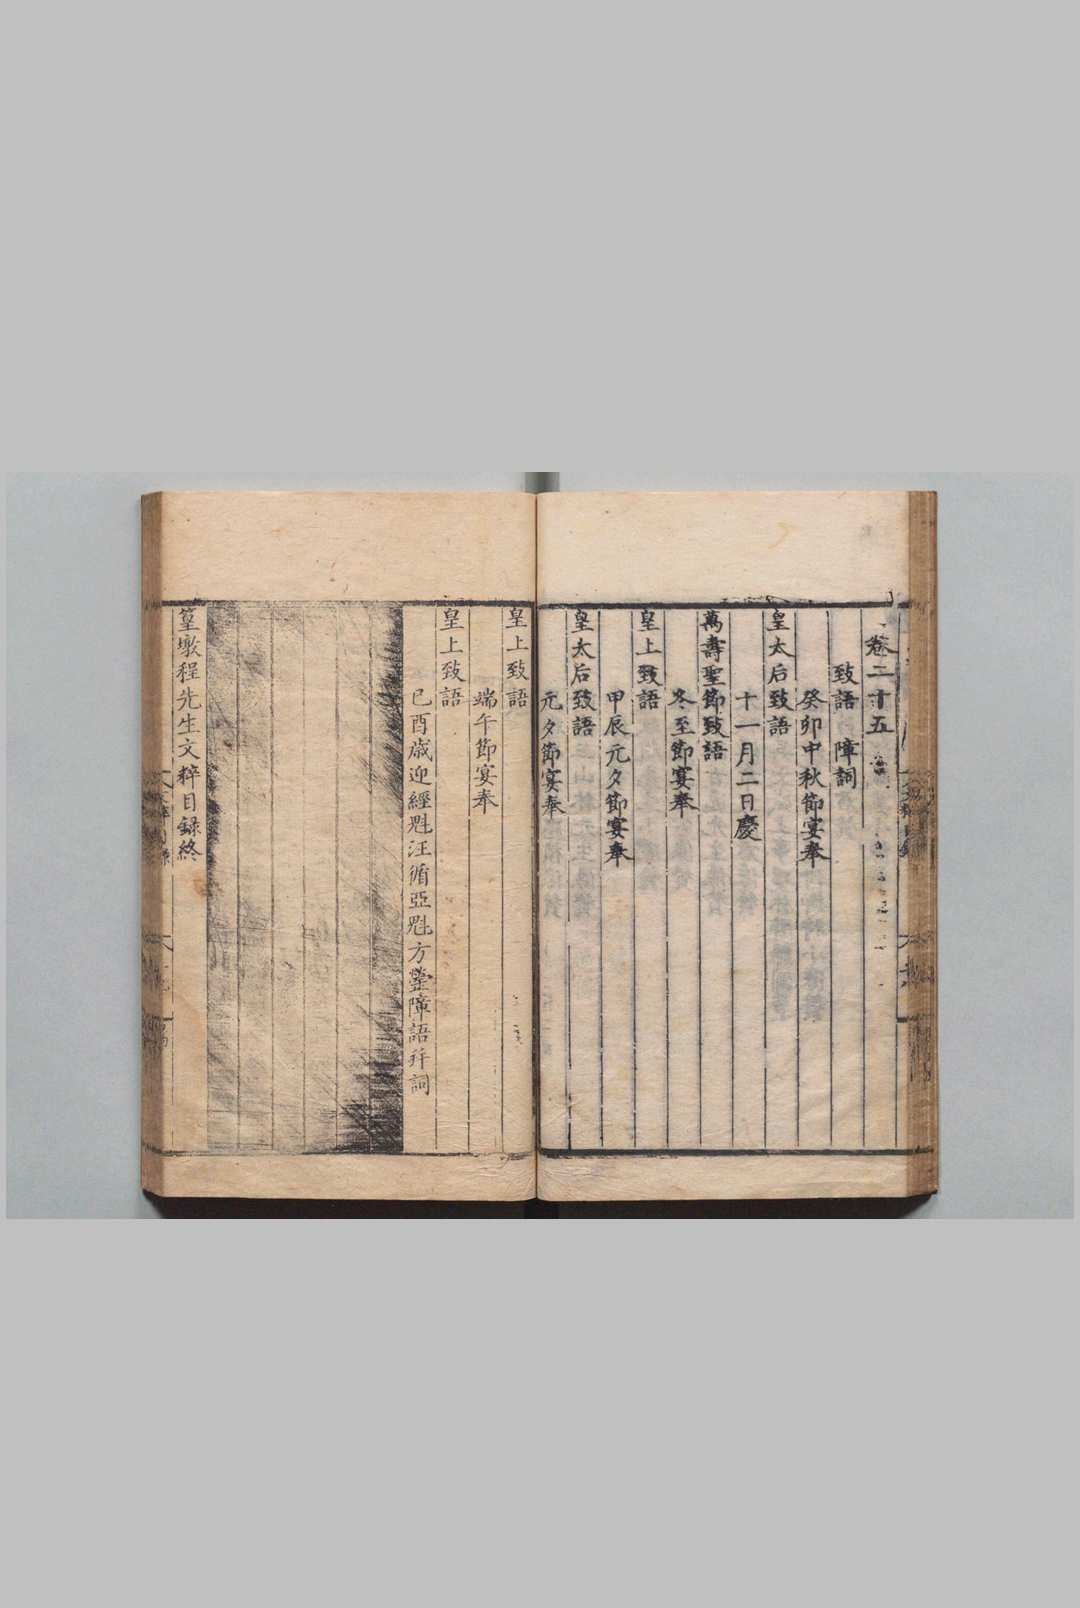 卷二十五
致語 障詞
癸卯中秋節宴奉
皇太后致語
十一月二日慶
萬壽聖節致語
冬至節宴奉
皇上致語
甲辰元夕節宴奉
皇太后致語
元夕節宴奉
皇上致語
端午節宴奉
皇上致語
己酉歲迎經魁汪循亞魁方蓥障語并詞
篁墩程先生文粹目録終